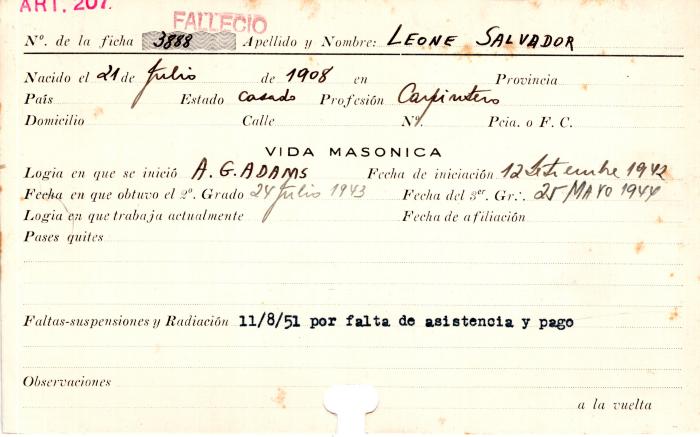 ART. 207.
FALLECIO
Nº. de la ficha 3888 Apellido y Nombre: LEONE SALVADOR
Nacido el 21 de Julio de 1908 en Provincia
País Estado casado Profesión Carpintero
Domicilio Calle Nº. Pcia. o F. C.
VIDA MASONICA
Logia en que se inició A. G. ADAMS Fecha de iniciación 12 Setiembre 1942
Fecha en que obtuvo el 2º. Grado 24 Julio 1943 Fecha del 3er. Gr∴ 25 MAYO 1944
Logia en que trabaja actualmente Fecha de afiliación
Pases quites
Faltas-suspensiones y Radiación 11/8/51 por falta de asistencia y pago
Observaciones
a la vuelta